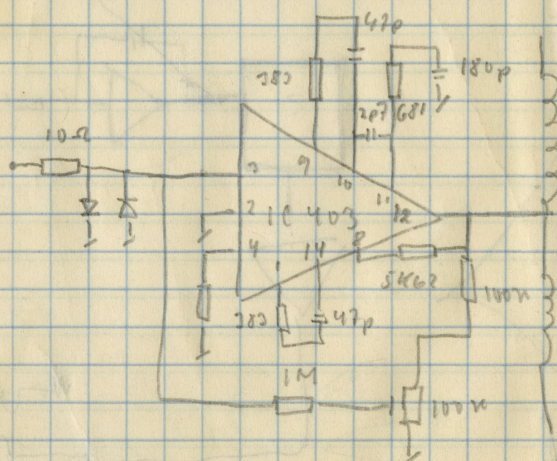 47p
383
180p
2p7
681
10Ω
3
9
10
11
12
2
IC 403
4
14
1
8
5K62
100K
383
47p
1M
100K